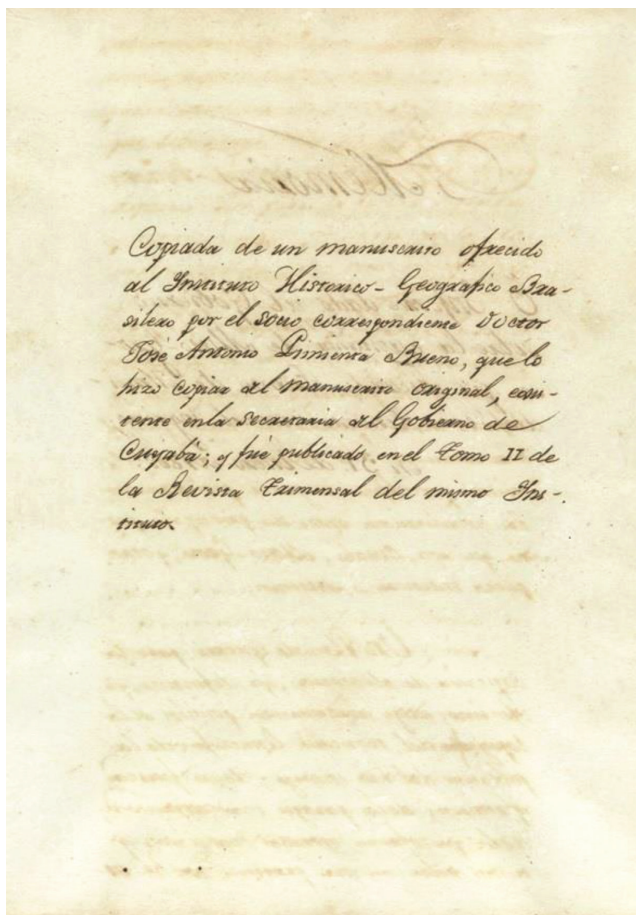 Copiada de un manuscrito ofrecido
al Instituto Historico - Geografico Bra-
silero por el socio correspondiente Doctor
José Antonio Pimienta Bueno, que lo
hizo copiar del manuscrito original, exis-
tente en la secretaria del Gobierno de
Cuyabá; y fué publicado en el Tomo II de
la Revista Trimensal del mismo Ins-
tituto.